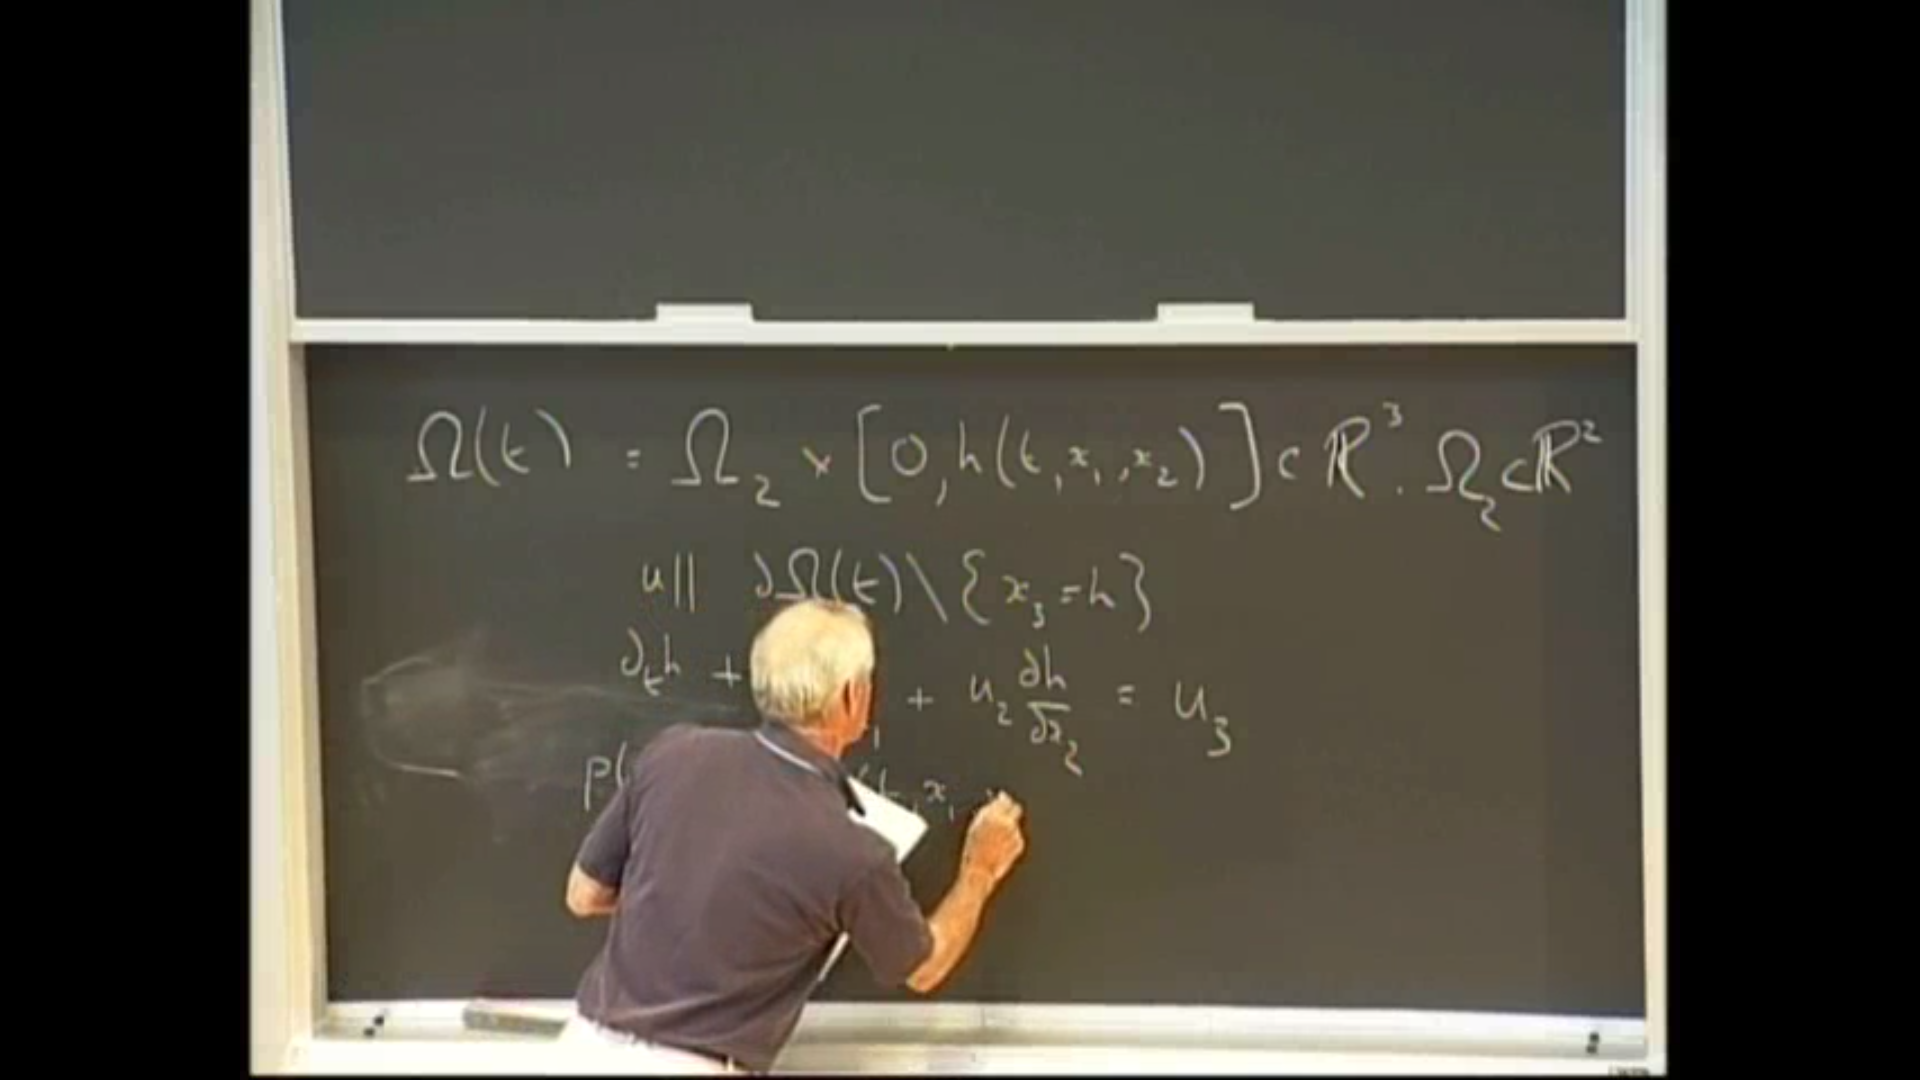 Ω(t) = Ω₂ × [0, h(t, x₁, x₂)] ⊂ ℝ³. Ω₂ ⊂ ℝ²
u || ∂Ω(t) \ {x₃ = h}
∂ₜh + + u₂ ∂h/∂x₂ = u₃
p( t, x₁,